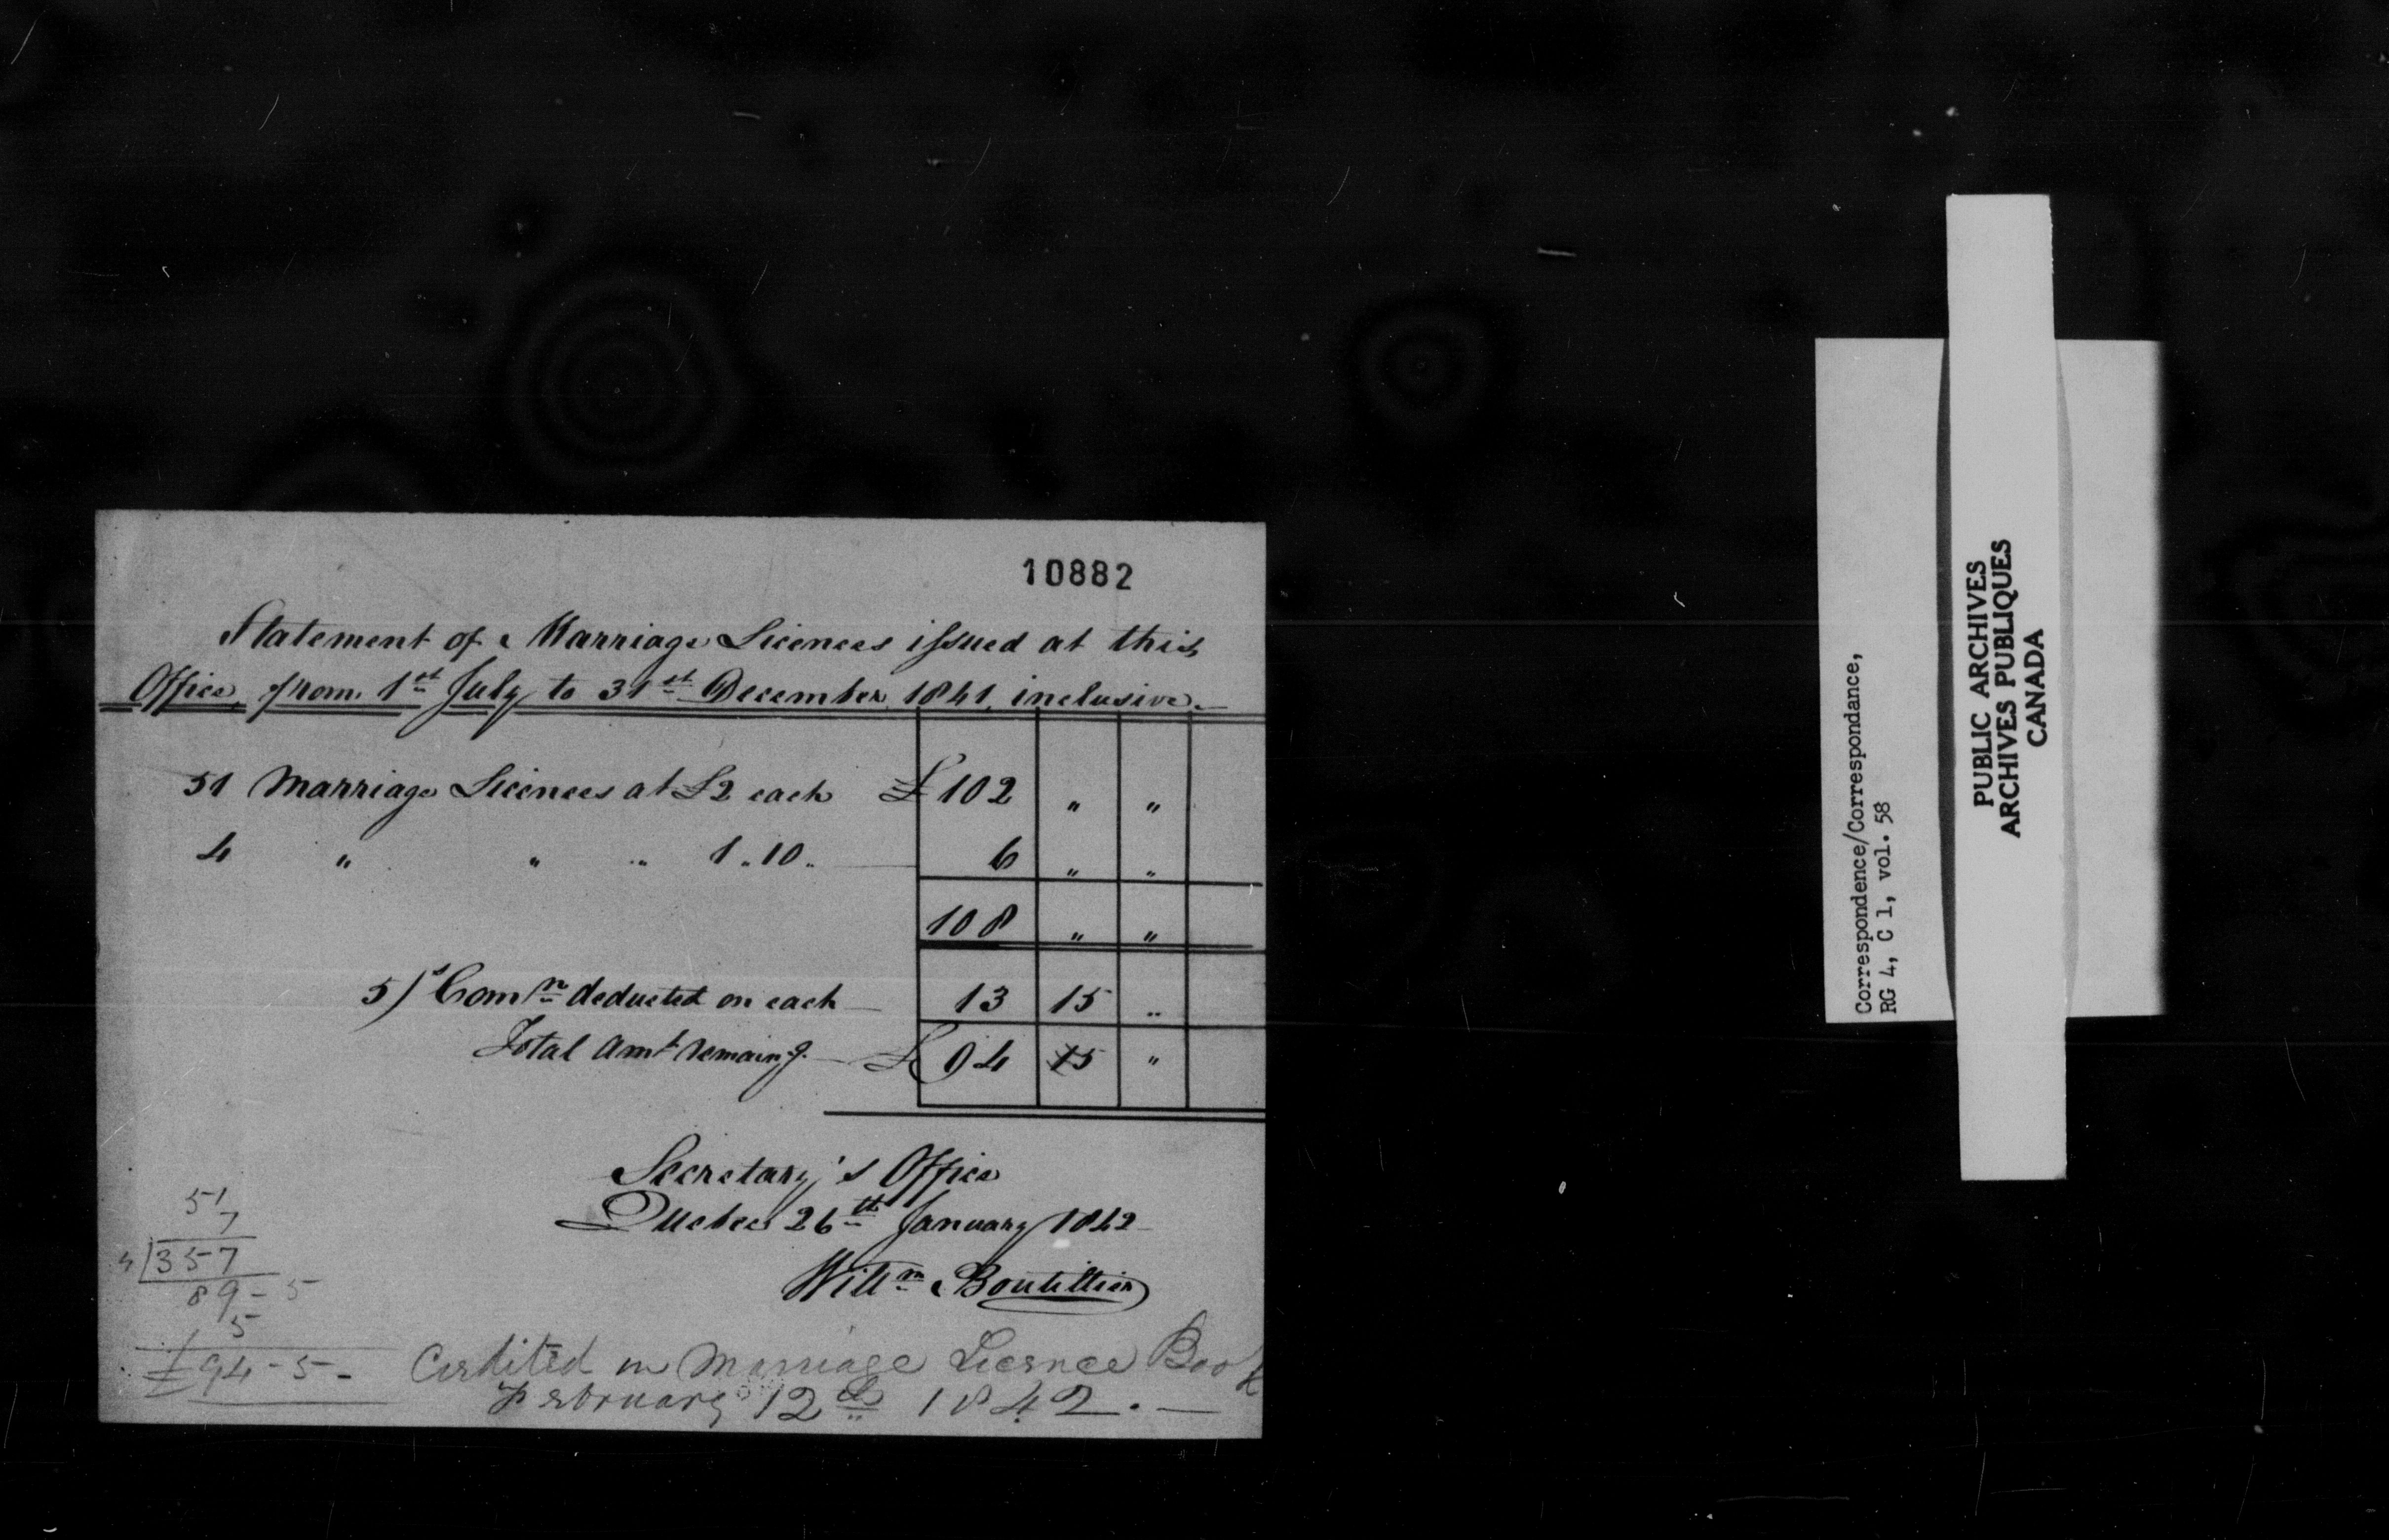 10882
Statement of Marriage Licences issued at this
Office, from 1st July to 31st December 1841, inclusive.
51 Marriage Licences at £2 each £ 102 " "
4 " " " 1 " 10 " 6 " "
108 " "
5/s Comn deducted on each 13 15 "
Total Amt remaing. £ 94 5 "
Secretary's Office
Quebec 26th January 1842
Willm Boutillier
51
7
4 357
89 - 5
5
£94 - 5 -
Credited in Marriage Licence Book
February 12th 1842. —
Correspondence/Correspondance,
RG 4, C 1, vol. 58
PUBLIC ARCHIVES
ARCHIVES PUBLIQUES
CANADA